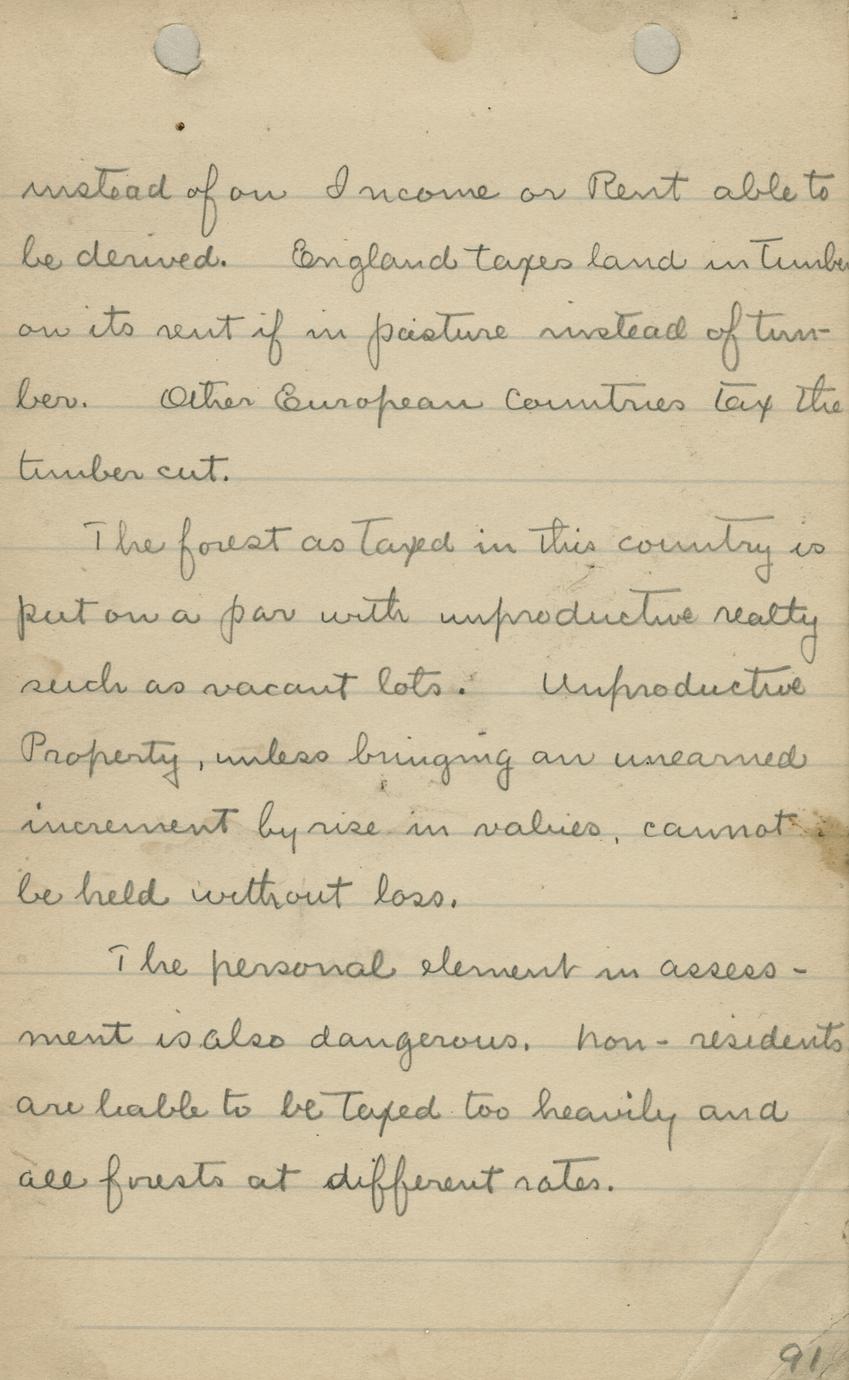 instead of on Income or Rent able to
be derived. England taxes land in Timber
on its rent if in pasture instead of tim-
ber. Other European Countries Tax the
timber cut.
The forest as Taxed in this country is
put on a par with unproductive realty
such as vacant lots. Unproductive
Property, unless bringing an unearned
increment by rise in values, cannot
be held without loss.
The personal element in assess-
ment is also dangerous. Non-residents
are liable to be Taxed too heavily and
all forests at different rates.
91